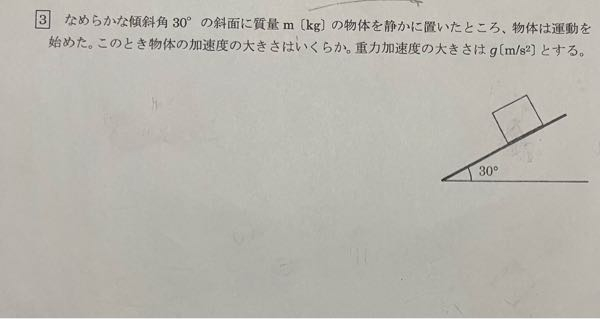 3 なめらかな傾斜角 30°の斜面に質量 m〔kg〕の物体を静かに置いたところ、物体は運動を
始めた。このとき物体の加速度の大きさはいくらか。重力加速度の大きさは g〔m/s²〕とする。
30°